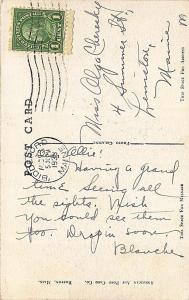 Miss Olga Clensky
4 Summer St.,
Lewiston,
Maine
THIS SPACE FOR ADDRESS
POST CARD
PHOTO COLORIT
BIDDEFORD
MAINE
1
Ollie!
Having a grand
time seeing all
the sights. Wish
you could see them
too. Drop in soon.
Blanche
THIS SPACE FOR MESSAGE
AMERICAN ART POST CARD CO.
BOSTON, MASS.